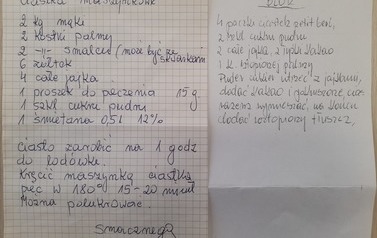 ciastka maszynkowe
2 kg mąki
2 kostki palmy
2 -"- smalcu (może być ze skwarkami
6 żółtek
4 całe jajka
1 proszek do pieczenia 15g
1 szkl cukru pudru
1 śmietana 0,5l 12%
ciasto zarobić na 1 godz
do lodówki.
Kręcić maszynką ciastka
piec w 180° 15-20 minut
Można polukrować.
Smacznego
BLOK
4 paczki ciastek petit beur,
2 szkl cukru pudru
2 całe jajka, 2 łyżki kakao
1 k. palmy
cukier utrzeć z jajkami,
dodać kakao i
wymieszać, na końcu
dodać roztopiony tłuszcz,